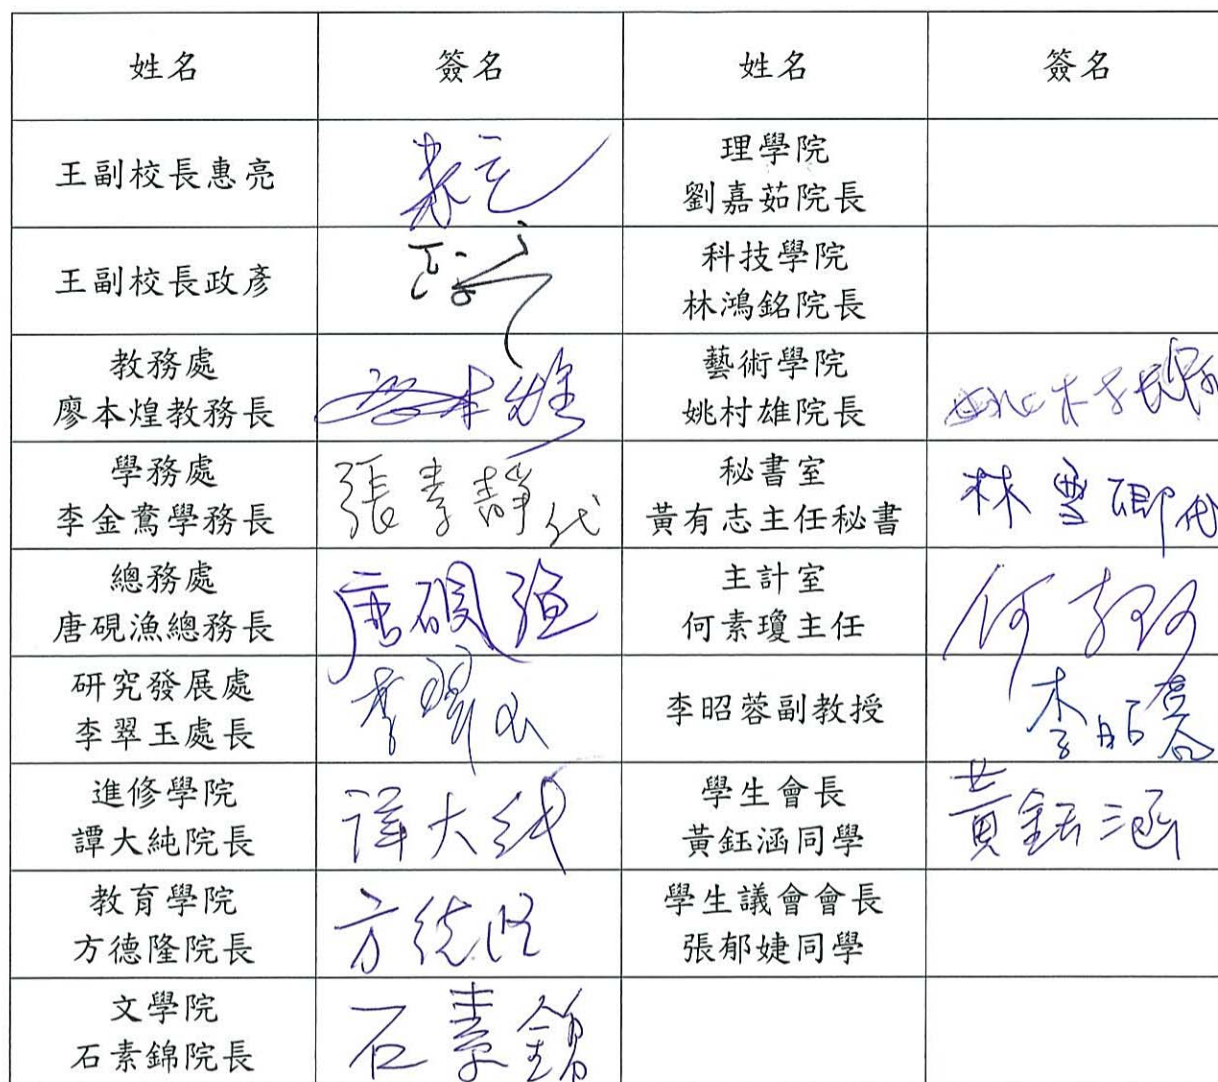 姓名 簽名 姓名 簽名
王副校長惠亮
理學院
劉嘉茹院長
王副校長政彥
科技學院
林鴻銘院長
教務處
廖本煌教務長
廖本煌
藝術學院
姚村雄院長
姚村雄
學務處
李金鴦學務長
張素靜代
秘書室
黃有志主任秘書
林雪卿代
總務處
唐硯漁總務長
唐硯漁
主計室
何素瓊主任
何
研究發展處
李翠玉處長
李翠玉
李昭蓉副教授
李昭蓉
進修學院
譚大純院長
譚大純
學生會長
黃鈺涵同學
黃鈺涵
教育學院
方德隆院長
方德隆
學生議會會長
張郁婕同學
文學院
石素錦院長
石素錦